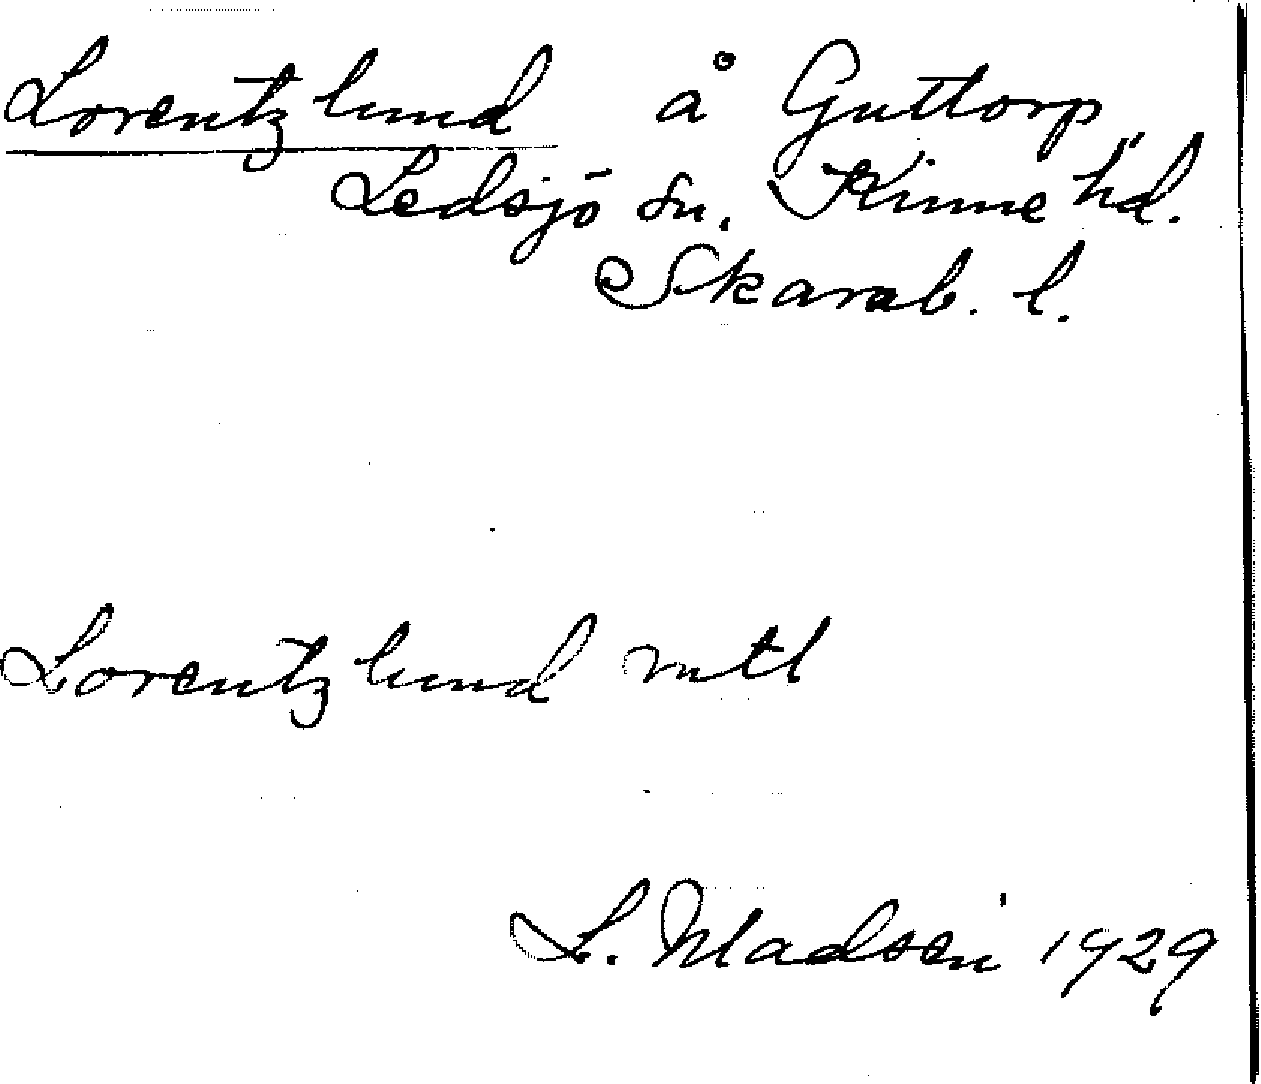 Lorentzlund å Guttorp,
Ledsjö sn. Kinne hd.
Skarab. l.
Lorentzlund mtl
L. Madsen 1929